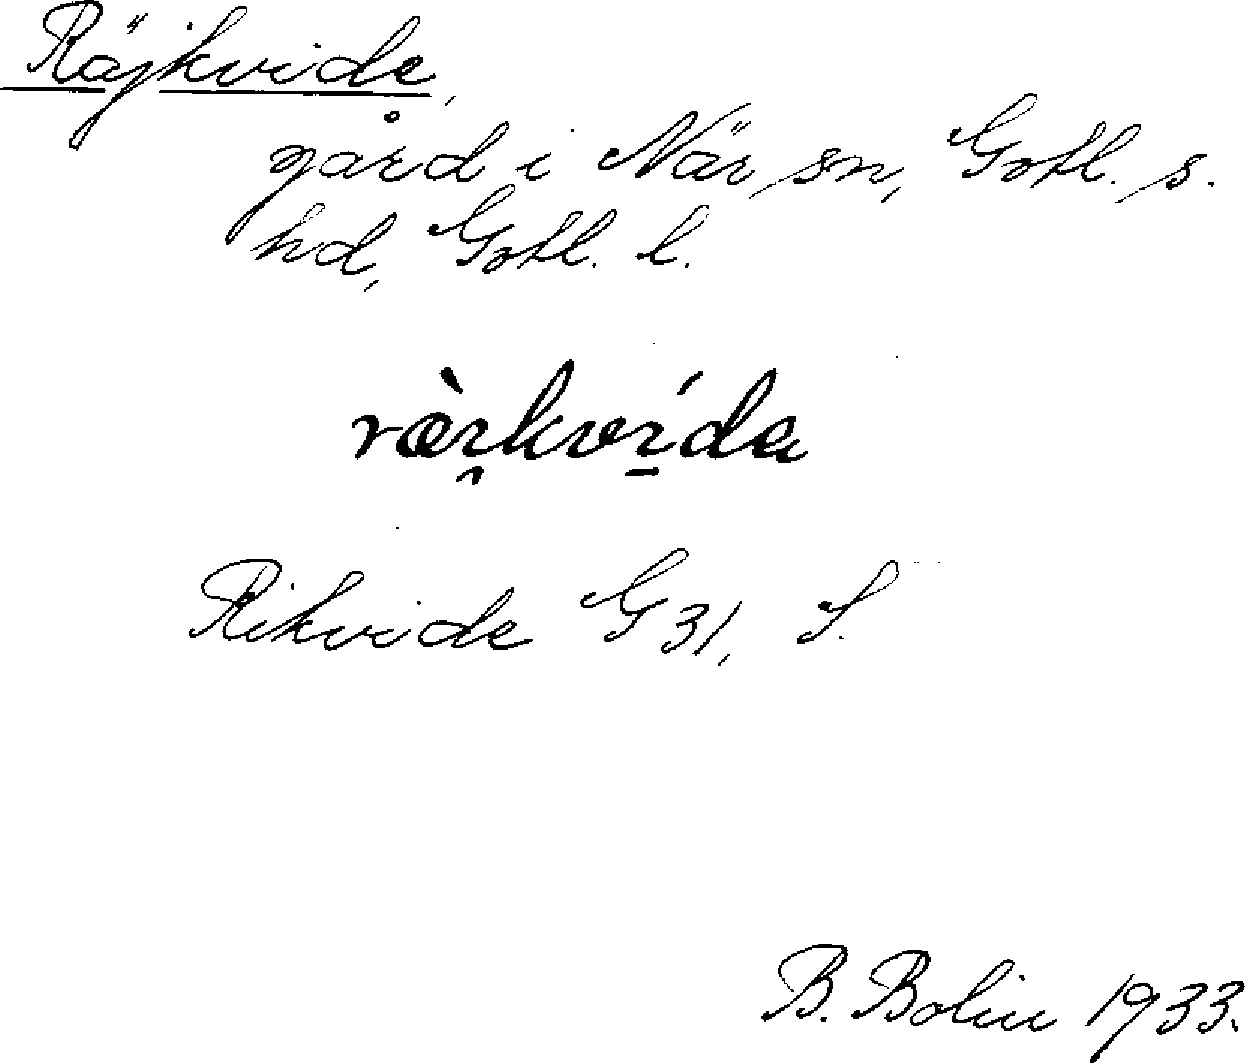 Räjkvide,
gård i När sn, Gotl. s.
hd, Gotl. l.
ræ̀i̯kví̱da
Rikvide G 31, S.
B. Bolin 1933.